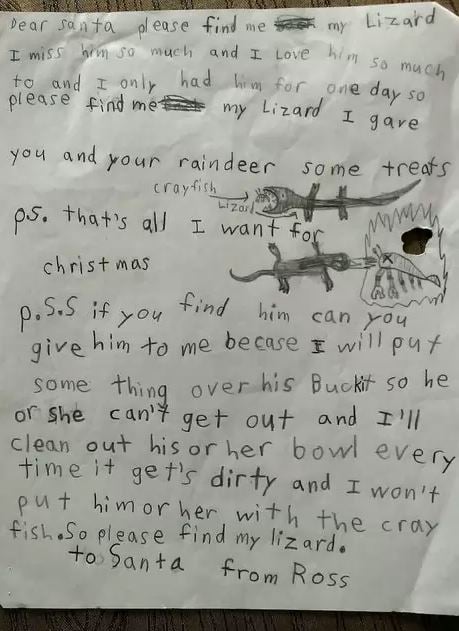 Dear santa please find me my Lizard
I miss him so much and I Love him so much
to and I only had him for one day so
please find me my Lizard I gave
you and your raindeer some treats
crayfish
Lizard
p.s. that's all I want for
christmas
p.s.s if you find him can you
give him to me becase I will put
some thing over his Buckit so he
or she can't get out and I'll
clean out his or her bowl every
time it get's dirty and I won't
put him or her with the cray
fish. So please find my lizard.
to Santa from Ross